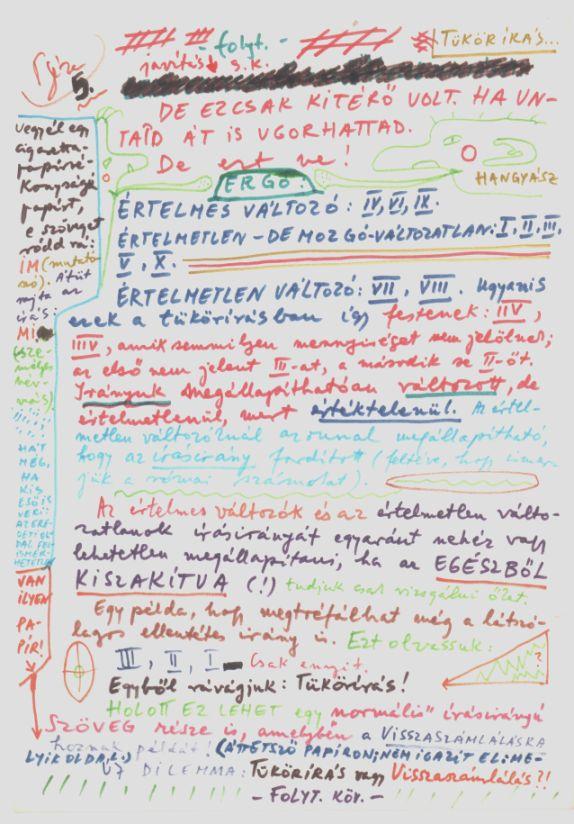 - folyt. -
TÜKÖRÍRÁS...
javítás s. k.
5.
DE EZ CSAK KITÉRŐ VOLT. HA UN-
TAÏD ÁT IS UGORHATTAD.
De ezt ne!
HANGYÁSZ
ERGO:
ÉRTELMES VÁLTOZÓ: IV, VI, IX.
ÉRTELMETLEN-DE MOZGÓ-VÁLTOZATLAN: I, II, III,
V, X.
ÉRTELMETLEN VÁLTOZÓ: VII, VIII. Ugyanis
ezek a tükörírásban így festenek: IIV,
IIIV, amik semmilyen mennyiséget nem jelölnek;
az első nem jelent III-at, a második se II-őt.
Irányuk megállapíthatóan változott, de
értelmetlenül, mert értéktelenül. Az értel-
metlen változóknál azonnal megállapítható,
hogy az írásirány fordított (feltéve, hogy ismer-
jük a római számokat).
Az értelmes változók és az értelmetlen válto-
zatlanok írásirányát egyaránt nehéz vagy
lehetetlen megállapítani, ha az EGÉSZBŐL
KISZAKÍTVA (!) tudjuk csak vizsgálni őket.
Egy példa, hogy megtréfálhat még a látszó-
lagos ellentétes irány is. Ezt olvassuk:
III, II, I
Csak ennyit.
?
Egyből rávágjuk: Tükörírás!
HOLOTT EZ LEHET egy "normális" írásirányú
SZÖVEG része is, amelyben a VISSZASZÁMLÁLÁSRA
hoznak példát! (ÁTTETSZŐ PAPÍRON; NEM IGAZÍT EL: ME-
LYIK OLDAL.)
ÚJ DILEMMA: TÜKÖRÍRÁS vagy Visszaszámlálás?!
- FOLYT. KÖV. -
Vegyél egy
cigaretta-
papírvé-
konyságú
papírt,
e szöveget
ródd rá:
IM (mutató
szó). Átüt
rajta az
írás:
MI
(sze-
mélyes
név-
más).
HÁT
MÉG,
HA
KIS
ESŐ IS
VERI:
AZ ERE-
DETI OL-
DAL FEL-
ISMER-
HETETLEN
VAN
ILYEN
PA-
PÍR!